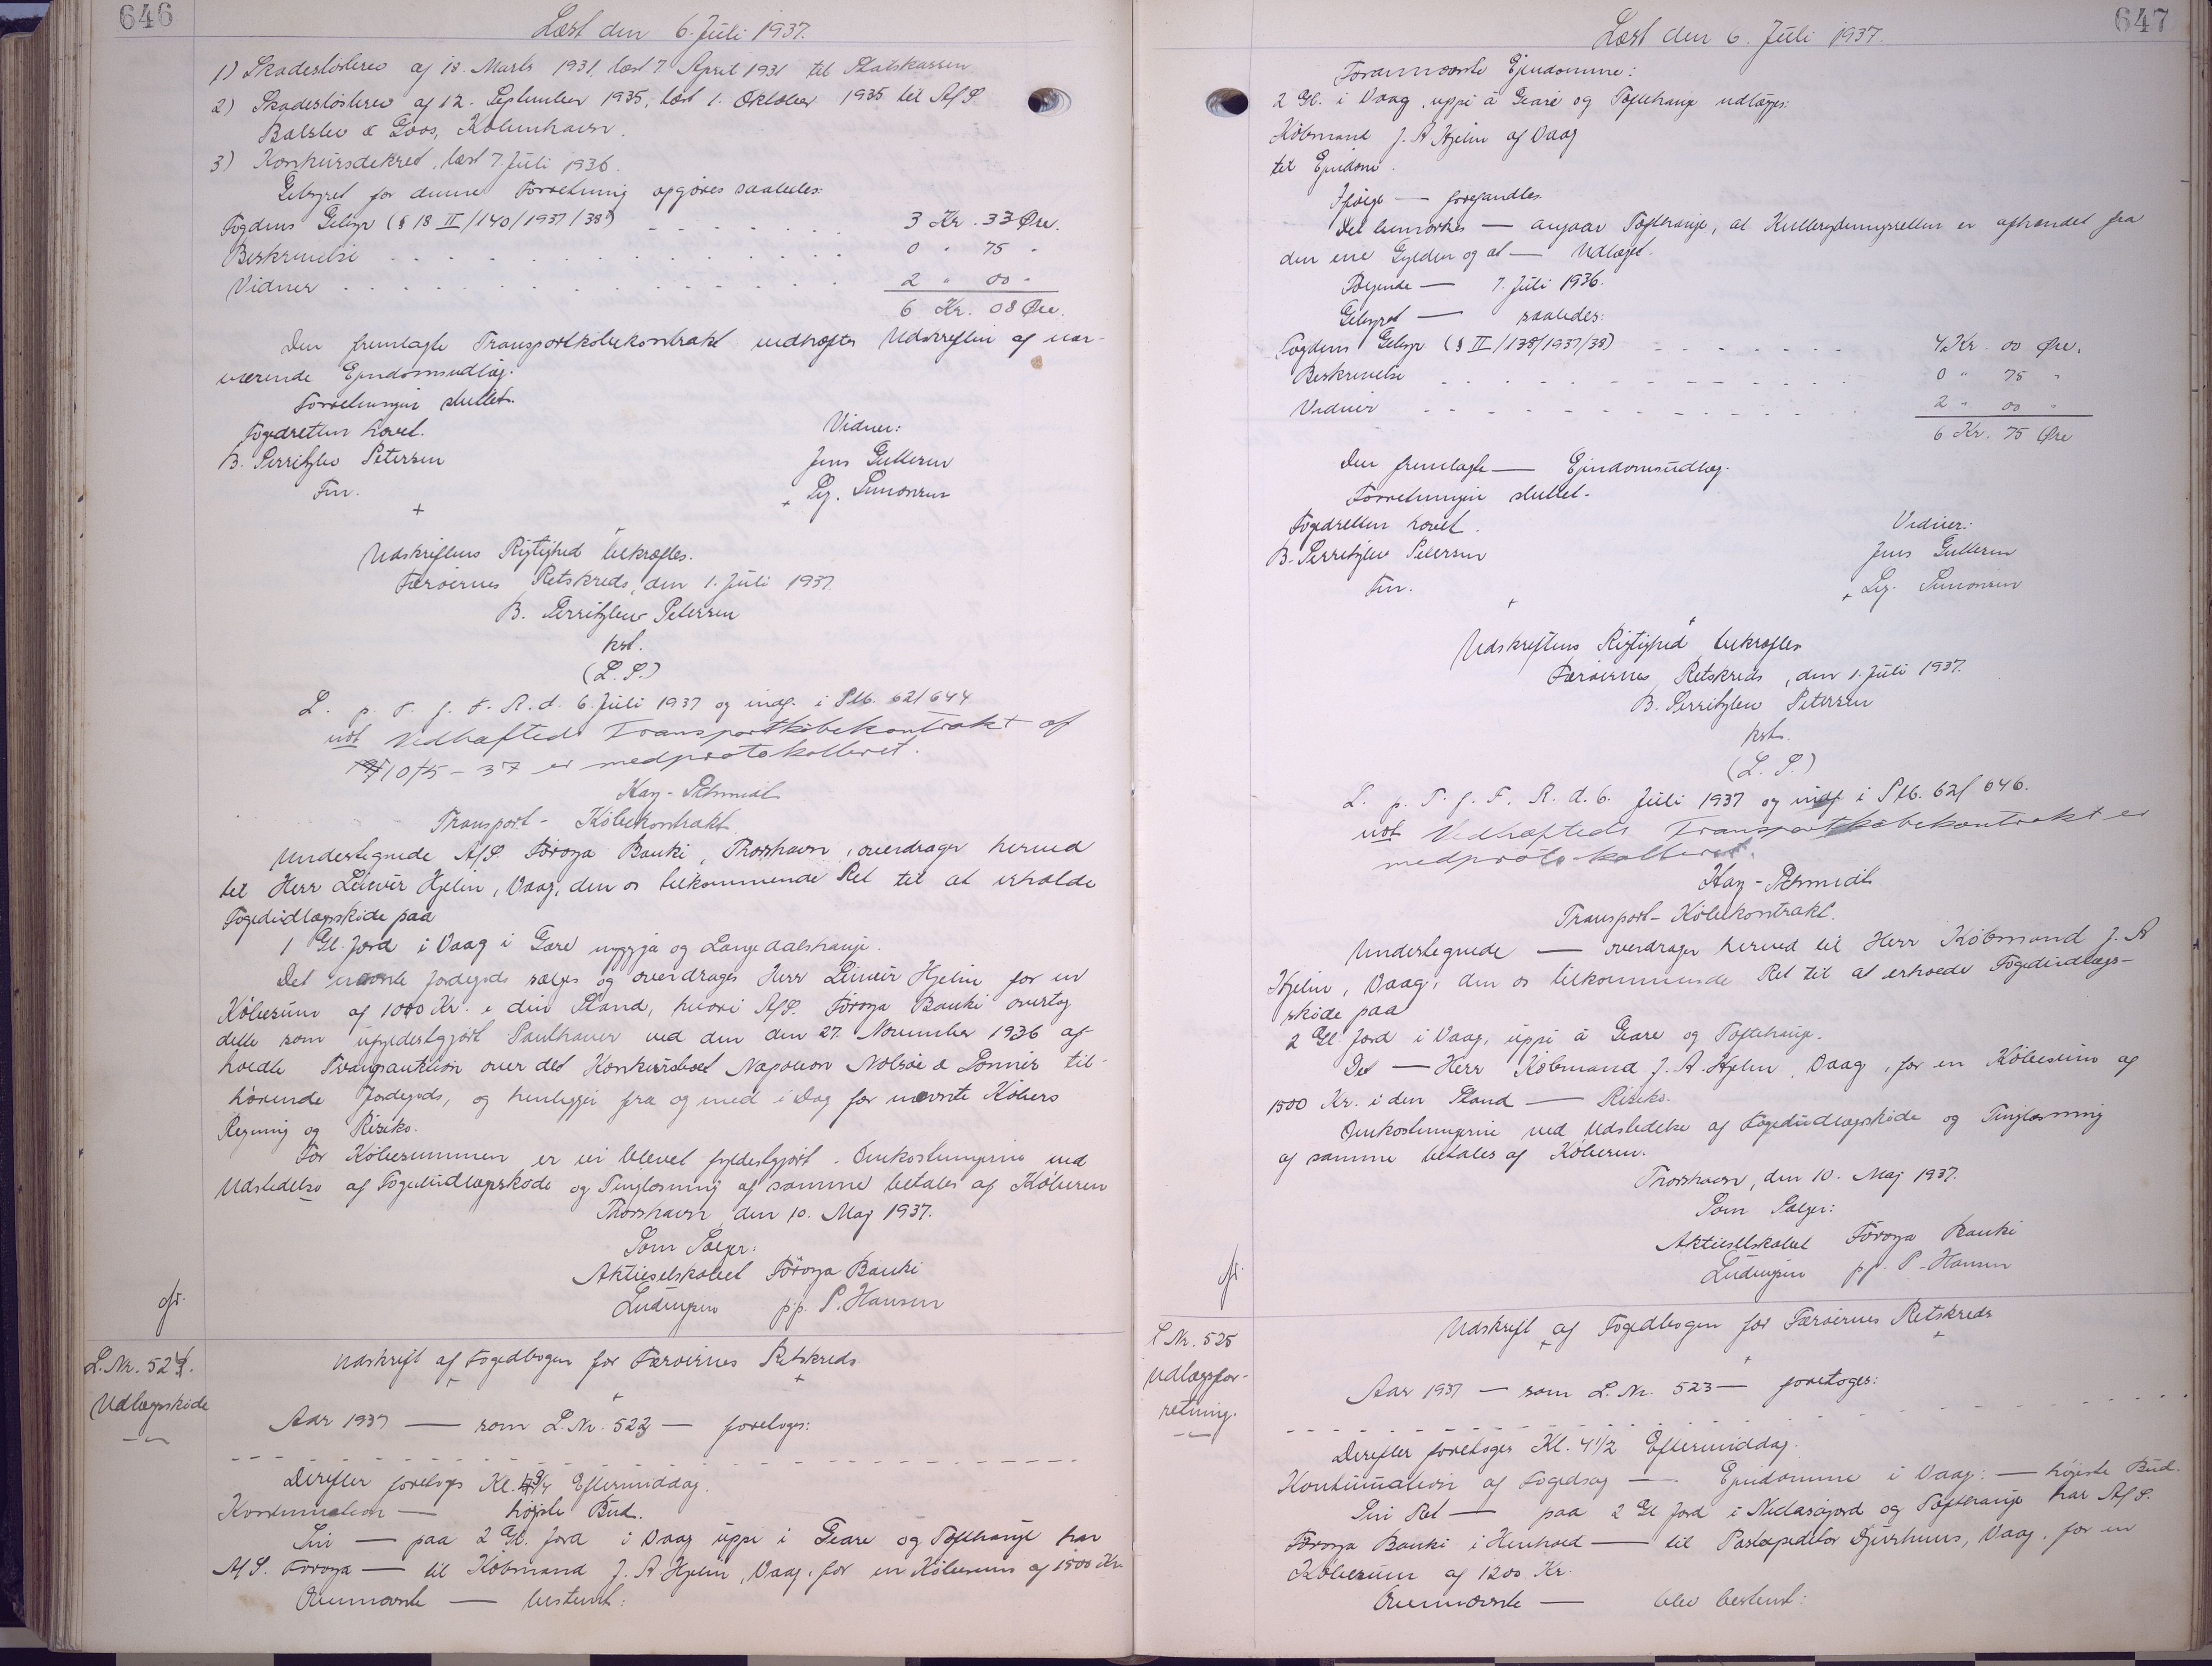 646
Læst den 6. Juli 1937.
1) Skadesløsbrev af 18. Marts 1931, læst 7 April 1931 til Statskassen
2) Skadesløsbrev af 12. September 1935, læst 1. Oktober 1935 til A/S.
Balslev & Goos, København.
3) Konkursdekret, læst 7. Juli 1936.
Gebyret for denne Forretning opgøres saaledes:
Fogdens Gebyr (§ 18 II/140/1937/38) 3 Kr. 33 Øre.
Beskrivelse 0 " 75 "
Vidner 2 " 00 "
6 Kr. 08 Øre.
Den fremlagte Transportkøbekontrakt vedhæftes Udskriften af nær-
værende Ejendomsudlæg.
Forretningen sluttet.
Fogedretten hævet.
Vidner:
B. Serritzlev Petersen
Jens Gullesen
Fm.
Sig. Simonsen
Udskriftens Rigtighed bekræftes.
Færøernes Retskreds, den 1. Juli 1937.
B. Serritzlev Petersen
kst.
(L.S.)
L. p. T. f. F. R. d. 6. Juli 1937 og indf. i Slb. 62/644
not Vedhæftede Transportkøbekontrakt af
10/5 - 37 er medprotokolleret.
Kay-Schmidt
Transport- Købekontrakt.
Undertegnede A/S. Føroya Banki, Thorshavn, overdrager herved
til Herr Leivur Hjelm, Vaag, den os tilkommende Ret til at erholde
Fogedudlægsskøde paa
1 Gl. Jord i Vaag i Gare uppgja og Langedalshauje.
Det nævnte Jordegods sælges og overdrages Herr Leivur Hjelm for en
Købesum af 1000 Kr. i den Stand, hvori A/S. Føroya Banki overtog
dette som ufyldestgjort Panthaver ved den den 27. November 1936 af-
holdte Tvangsauktion over det Konkursboet Napoleon Nolsøe & Sønner til-
hørende Jordegods, og henligger fra og med i Dag for nævnte Købers
Regning og Risiko.
For Købesummen er vi blevet fyldestgjort. Omkostningerne ved
Udstedelse af Fogedudlægsskøde og Tinglæsning af samme betales af Køberen
Thorshavn, den 10. Maj 1937.
Som Sælger:
Aktieselskabet Føroya Banki
pp. P. Hansen
L. Nr. 524.
Udlægsskøde
Udskrift af Fogedbogen for Færøernes Retskreds
Aar 1937 — som L. Nr. 523 — foretoges:
Derefter foretoges Kl. 4 1/4 Eftermiddag.
Kontinuation — højste Bud.
Sin — paa 2 Gl. Jord i Vaag uppi i Geare og Tofthauje har
A/S. Føroya — til Købmand J. A Hjelm, Vaag, for en Købesum af 1500 Kr.
Ovennævnte — bestemt:
647
Læst den 6. Juli 1937.
Forannævnte Ejendomme:
2 Gl. i Vaag, uppi á Geare og Toftehauje udlægges:
Købmand J. A Hjelm af Vaag
til Ejendom.
Ifølge — forefandtes.
Det bemærkes — angaar Tofthauje, at Kulbrydningsretten er afhændet fra
den ene Gylden og at — Udlæget.
Følgende — 7. Juli 1936.
Gebyret — saaledes:
Fogdens Gebyr (§ II/138/1937/38) 4 Kr. 00 Øre.
Beskrivelse 0 " 75 "
Vidner 2 " 00 "
6 Kr. 75 Øre
Den fremlagte — Ejendomsudlæg.
Forretningen sluttet.
Fogedretten hævet.
Vidner:
B. Serritzlev Petersen
Jens Gullesen
Fm.
Sig. Simonsen
Udskriftens Rigtighed bekræftes
Færøernes Retskreds, den 1. Juli 1937.
B. Serritzlev Petersen
kst.
(L. S.)
L. p. T. f. F. R. d. 6. Juli 1937 og indf. i Slb. 62/646.
not Vedhæftede Transportkøbekontrakt er
medprotokolleret.
Kay-Schmidt
Transport-Købekontrakt.
Undertegnede — overdrager herved til Herr Købmand J. A
Hjelm, Vaag, den os tilkommende Ret til at erholde Fogedudlægs-
skøde paa
2 Gl. Jord i Vaag, uppi á Geare og Toftehauje.
Det — Herr Købmand J. A. Hjelm, Vaag, for en Købesum af
1500 Kr. i den Stand — Risiko.
Omkostningerne ved Udstedelse af Fogedudlægsskøde og Tinglæsning
af samme betales af Køberen.
Thorshavn, den 10. Maj 1937.
Som Sælger:
Aktieselskabet Føroya Banki
pp. P. Hansen
L Nr. 525
Udlægsfor-
retning.
Udskrift af Fogedbogen for Færøernes Retskreds
Aar 1937 — som L. Nr. 523 — foretoges:
Derefter foretoges Kl. 4 1/2 Eftermiddag.
Kontinuation af Fogedsag — Ejendomme i Vaag: — højeste Bud.
Sin Ret — paa 2 Gl Jord i Niclasajord og Tofthauje har A/S.
Føroya Banki i Henhold — til Postexpeditør Djurhuus, Vaag, for en
Købesum af 1200 Kr.
Ovennævnte — blev bestemt: